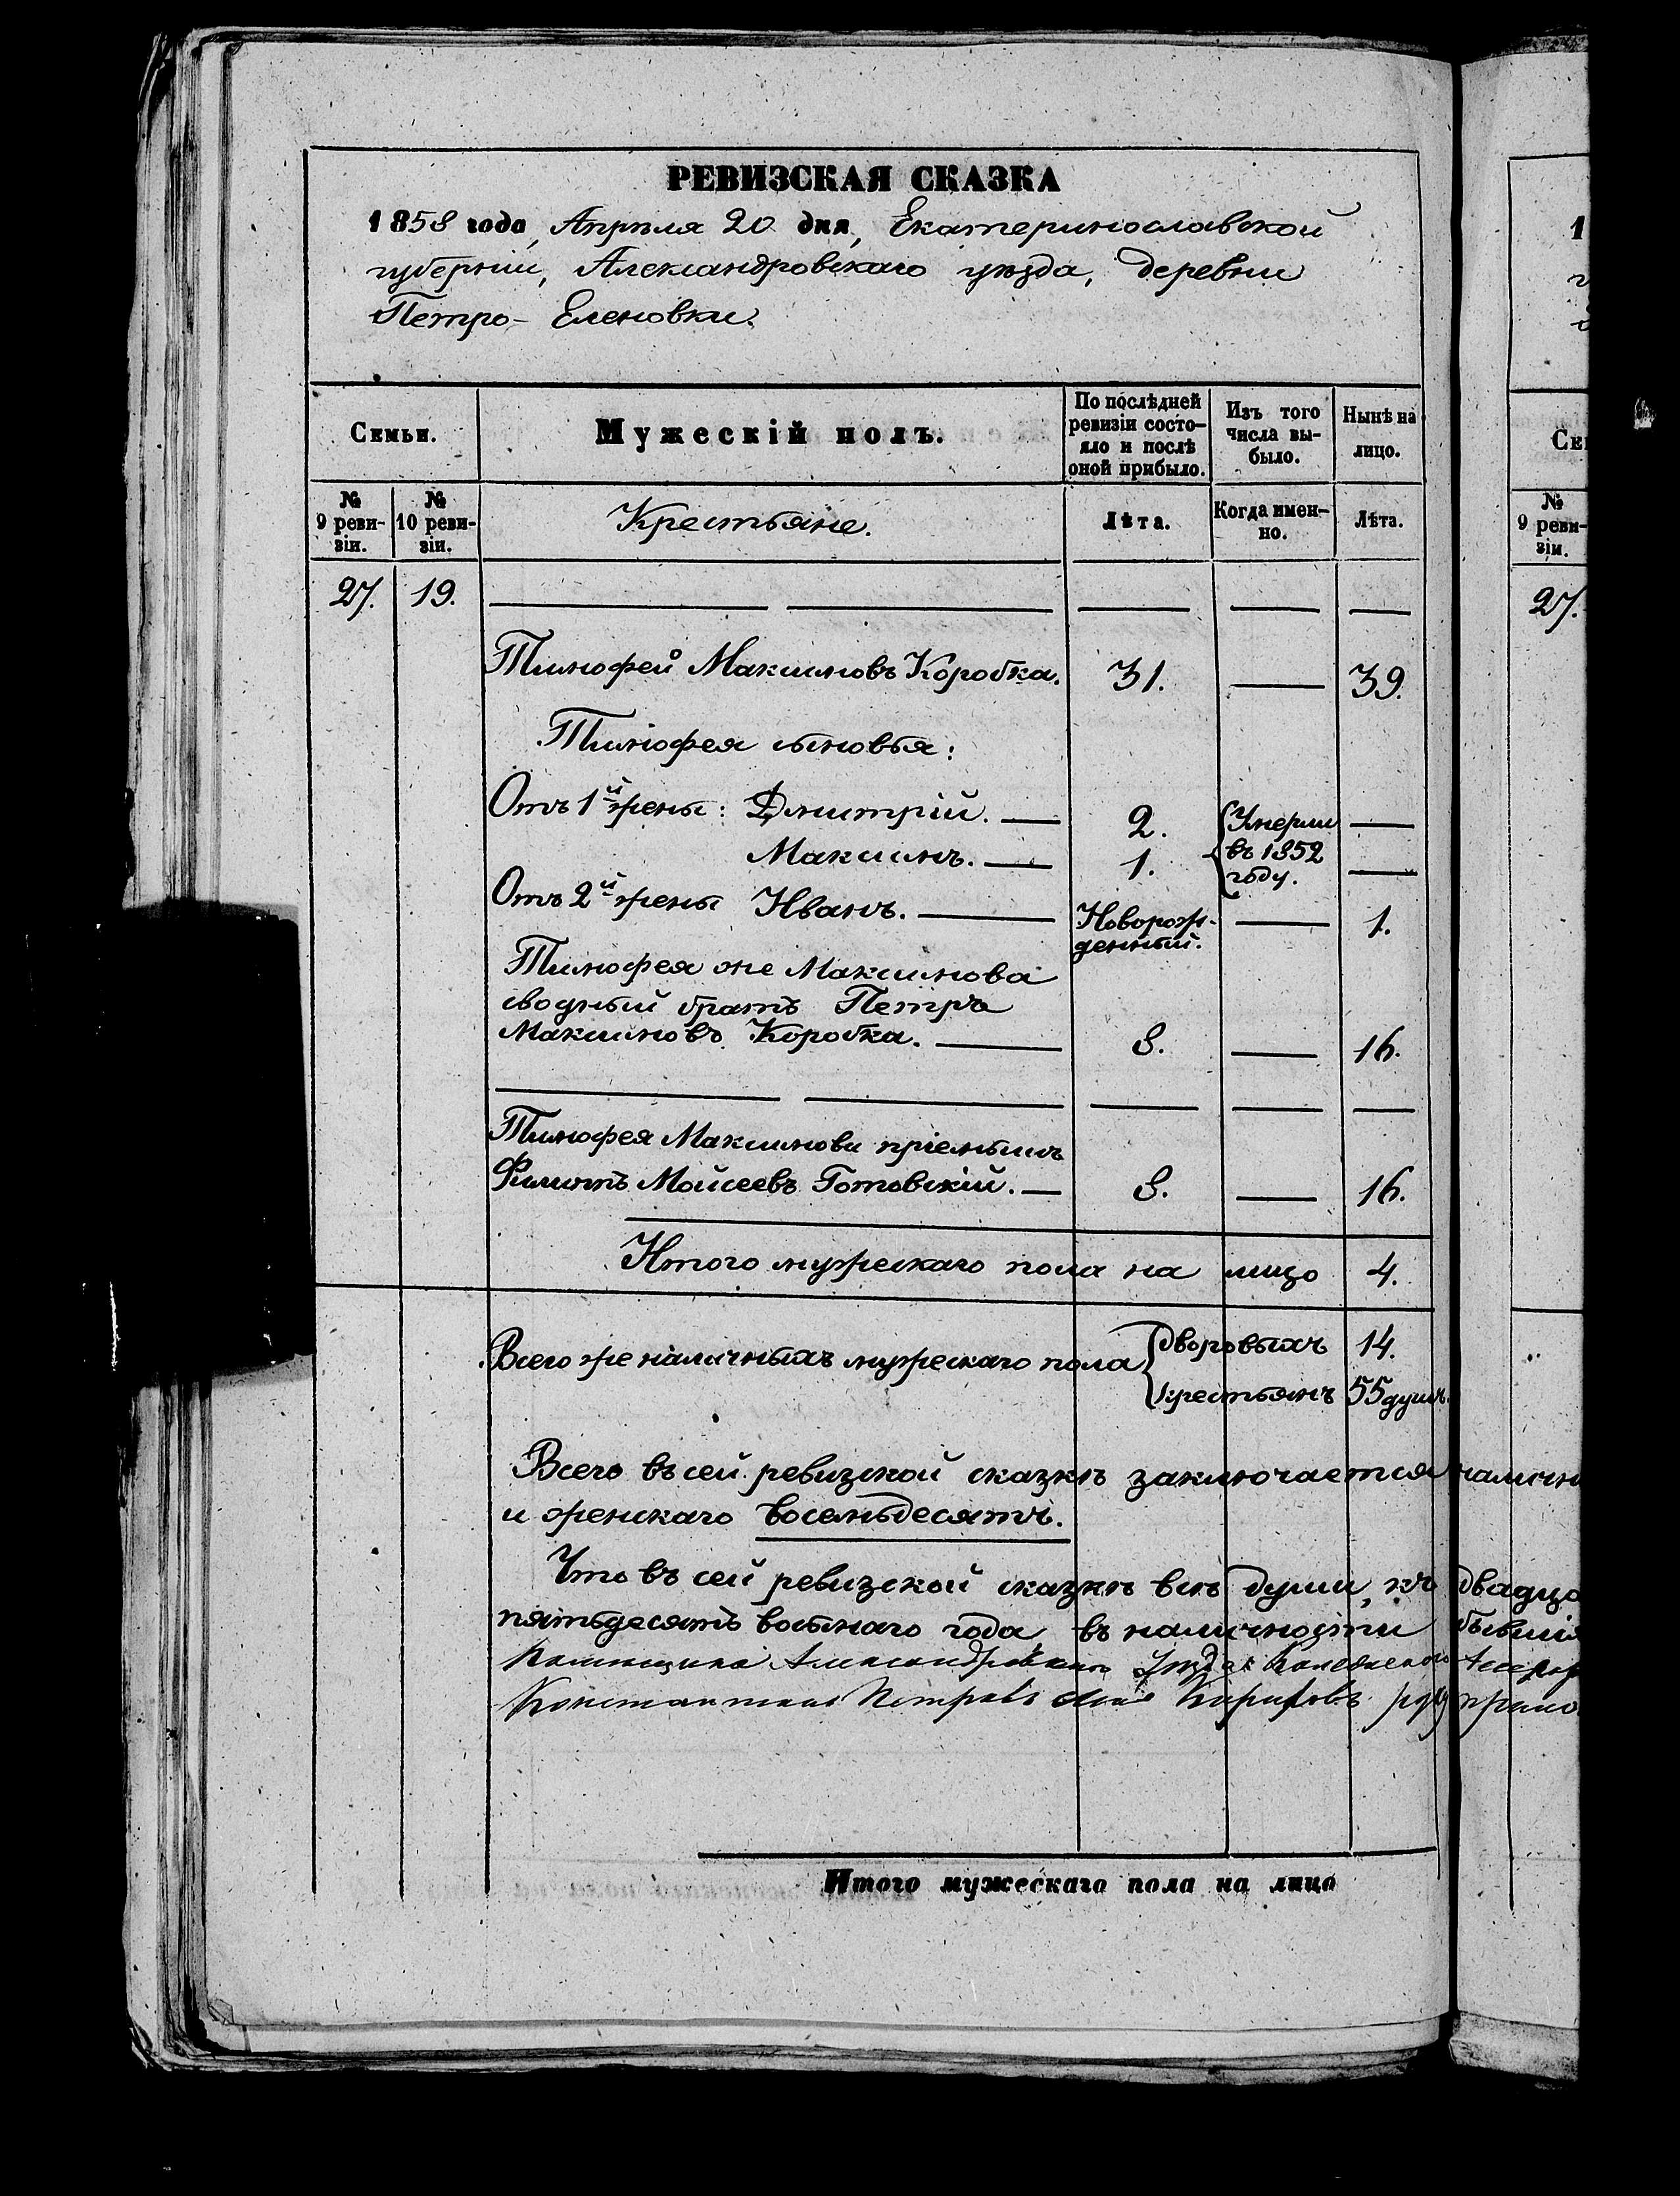 РЕВИЗСКАЯ СКАЗКА
1858 года, Апрѣля 20 дня, Екатеринославской
губерніи, Александровскаго уѣзда, деревни
Петро-Еленовки.
Семьи.
Мужескій полъ.
По послѣдней ревизіи состо-
яло и послѣ
оной прибыло.
Изъ того
числа вы-
было.
Нынѣ на
лицо.
№ 9 реви-
зіи.
№ 10 реви-
зіи.
Крестьяне.
Лѣта.
Когда имен-
но.
Лѣта.
27. 19.
Тимофей Максимовъ Коробка. 31. 39.
Тимофея сыновья:
Отъ 1й жены: Дмитрій. 2. Умерли
Максимъ. 1. въ 1852
году.
Отъ 2й жены Иванъ. Новорож-
денный. 1.
Тимофея же Максимова
сводный братъ Петръ
Максимовъ Коробка. 8. 16.
Тимофея Максимова пріемышъ
Филиппъ Мойсеевъ Готовскій. 8. 16.
Итого мужескаго пола на лицо 4.
Всего же наличныхъ мужескаго пола дворовыхъ 14.
крестьянъ 55 душъ.
Всего въ сей ревизской сказкѣ заключается наличн
и женскаго восемьдесятъ.
Что въ сей ревизской сказкѣ всѣ души, къ двадца
пятьдесятъ восьмаго года въ наличности бывшія
Помѣщика Александровскаго Уѣзда Ассесор
Константина Петрова сына
Итого мужескаго пола на лицо
1
Се
№
9 реви-
зіи.
27.